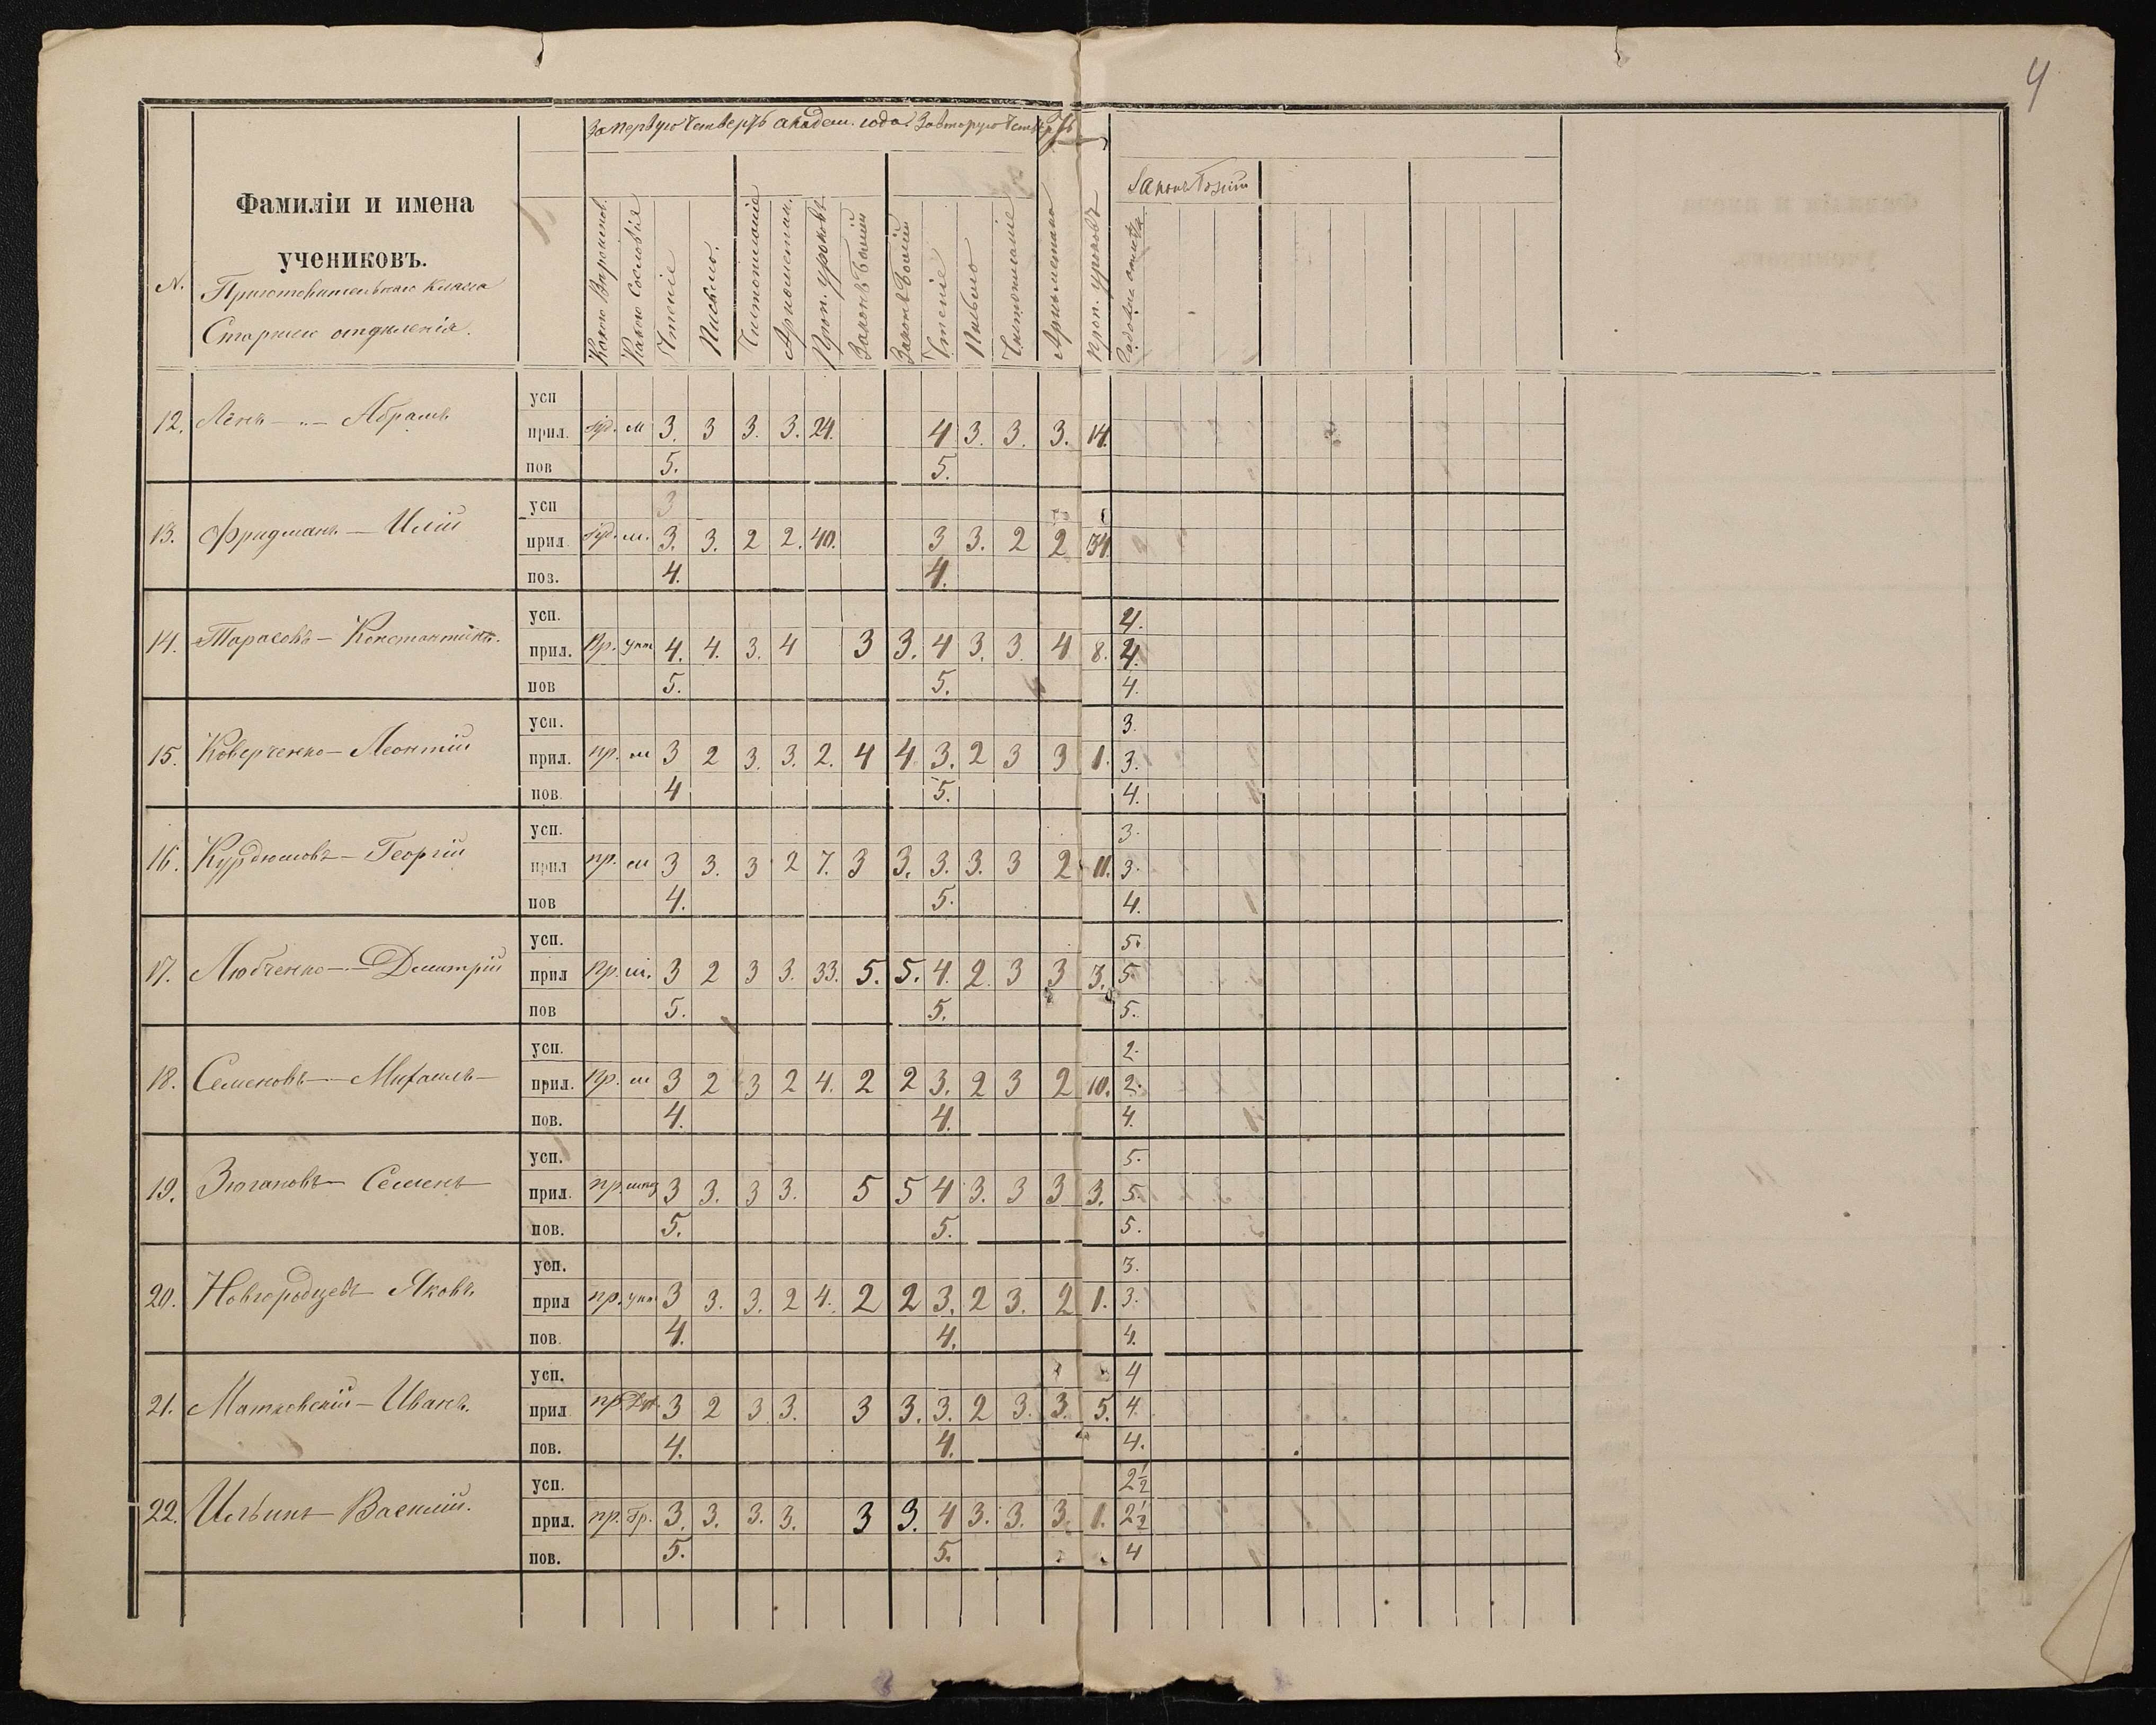 4
За первую четверть академ. года. За вторую четверть
Законъ Божій
N.
Фамиліи и имена
учениковъ.
Приготовительнаго класса
Старшаго отдѣленія.
Какого Вѣроисповѣд.
Какого Сословія
Чтеніе
Письмо.
Чистописаніе
Ариѳметик.
Проп. уроковъ
Законъ Божій
Законъ Божій
Чтеніе
Письмо
Чистописаніе
Ариѳметика
Проп. уроковъ
Годовыя отмѣтки
усп
12. Лёнъ — Абрамъ прил. Іуд. м 3. 3 3. 3. 24. 4 3. 3. 3. 14.
пов 5. 5.
усп 3
13. Фридманъ — Илій прил Іуд. м. 3. 3. 2 2. 40. 3 3. 2 2 34.
поз. 4. 4.
усп. 4.
14. Тарасовъ — Константинъ. прил. Пр. унт 4. 4. 3. 4 3 3. 4 3. 3. 4 8. 4.
пов 5. 5. 4.
усп. 3.
15. Коверченко — Леонтій прил. пр. м 3 2 3. 3. 2. 4 4. 3. 2 3 3 1. 3.
пов. 4 5. 4.
усп. 3.
16. Курдюмовъ — Георгій прил пр. м 3 3. 3 2 7. 3 3. 3. 3. 3 2 11. 3.
пов 4. 5. 4.
усп. 5.
17. Любченко — Дмитрій прил пр. м. 3 2 3 3. 33. 5. 5. 4. 2. 3 3 3. 5.
пов 5. 5. 5.
усп. 2.
18. Семеновъ — Михаилъ — прил. пр. м 3 2 3 2 4. 2 2 3. 2 3 2 10. 2.
пов. 4. 4. 4.
усп. 5.
19. Зюгановъ — Семенъ прил. пр. 3 3. 3 3. 5 5 4 3. 3 3 3. 5.
пов. 5. 5. 5.
усп. 3.
20. Новгородцевъ Яковъ. прил пр. унт 3 3. 3. 2 4. 2 2 3. 2 3. 2 1. 3.
пов. 4. 4. 4.
усп. 4
21. Матковскій — Иванъ. прил пр. 3 2 3. 3. 3 3. 3. 2 3. 3. 5. 4.
пов. 4. 4. 4.
усп. 2½
22. Ильинъ — Василій. прил. пр. Гр. 3. 3. 3. 3. 3 3. 4 3. 3. 3. 1. 2½
пов. 5. 5. 4